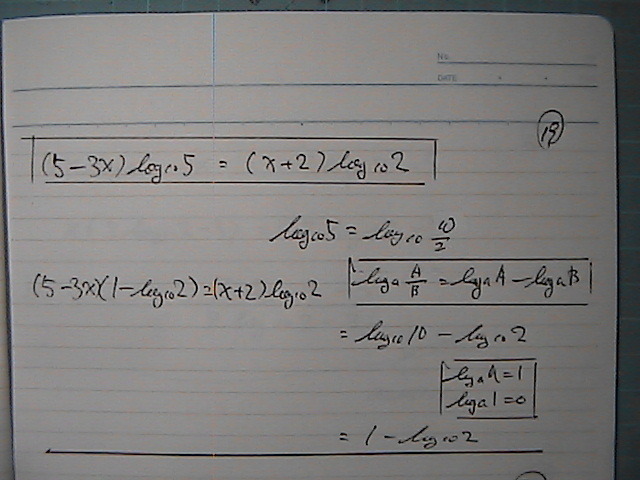 No.
DATE
19
(5-3x)log₁₀5 = (x+2)log₁₀2
log₁₀5 = log₁₀ 10/2
(5-3x)(1-log₁₀2)=(x+2)log₁₀2
logₐ A/B = logₐA - logₐB
= log₁₀10 - log₁₀2
logₐA=1
logₐ1=0
= 1 - log₁₀2